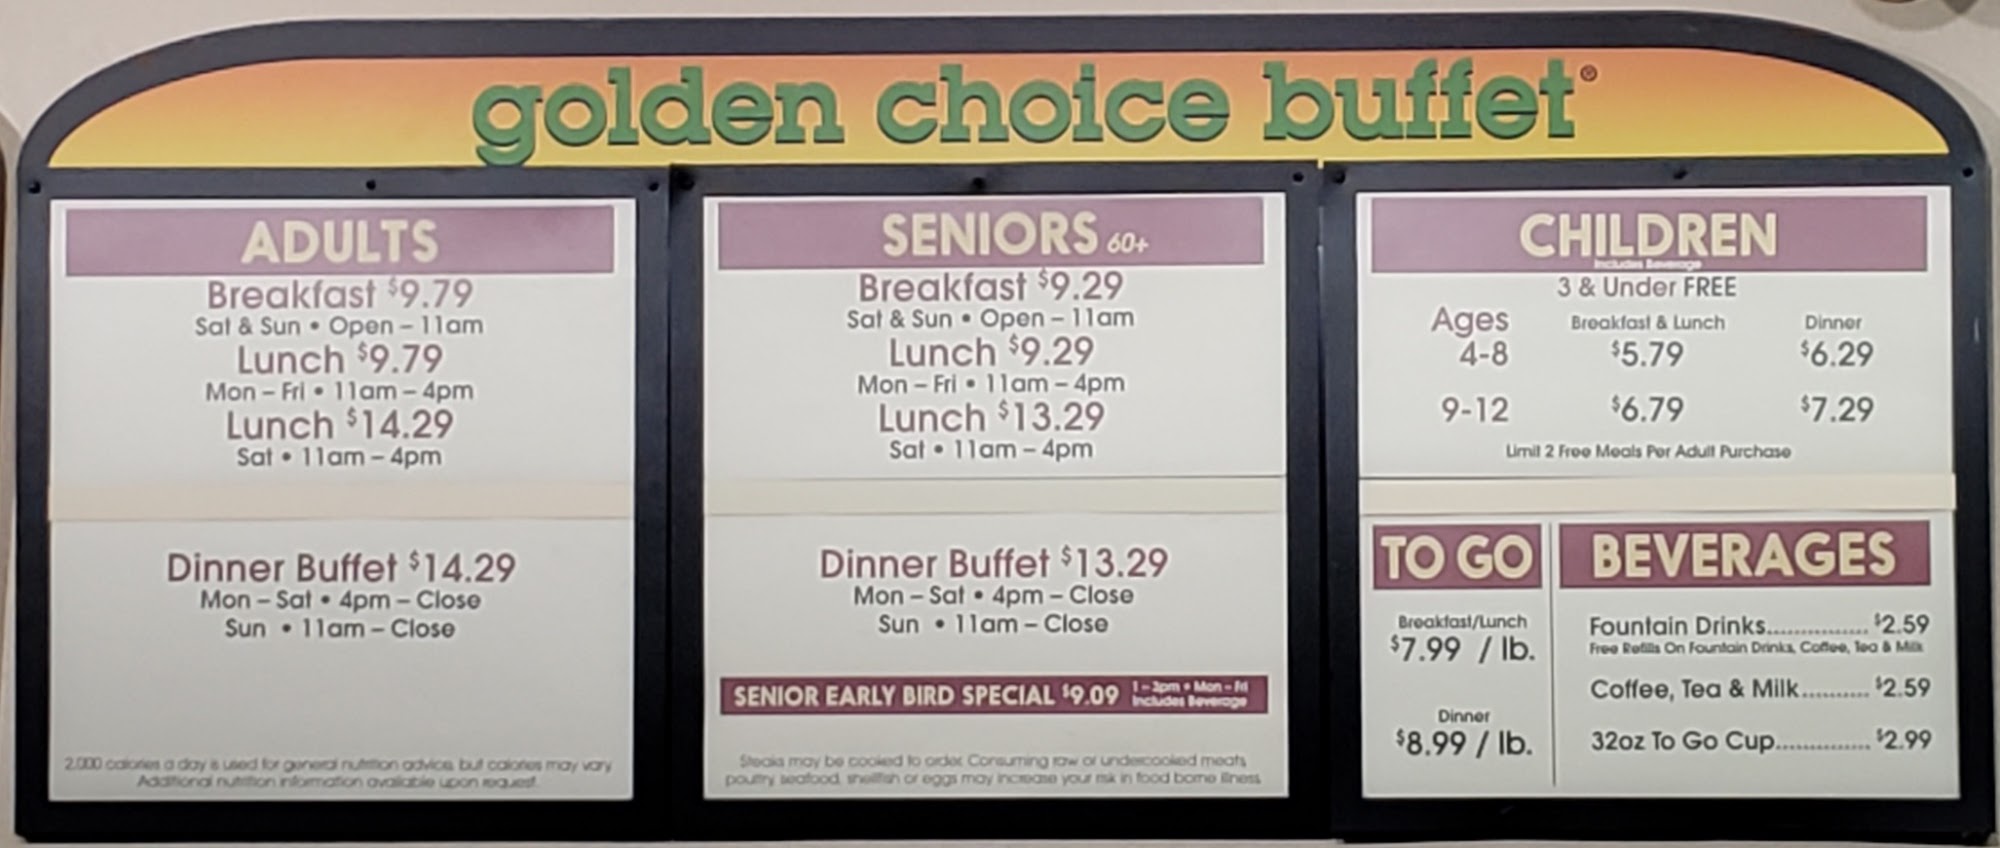 golden choice buffet®
ADULTS
Breakfast $9.79
Sat & Sun • Open – 11am
Lunch $9.79
Mon – Fri • 11am – 4pm
Lunch $14.29
Sat • 11am – 4pm
Dinner Buffet $14.29
Mon – Sat • 4pm – Close
Sun • 11am – Close
2,000 calories a day is used for general nutrition advice, but calories may vary
Additional nutrition information available upon request.
SENIORS 60+
Breakfast $9.29
Sat & Sun • Open – 11am
Lunch $9.29
Mon – Fri • 11am – 4pm
Lunch $13.29
Sat • 11am – 4pm
Dinner Buffet $13.29
Mon – Sat • 4pm – Close
Sun • 11am – Close
SENIOR EARLY BIRD SPECIAL $9.09 1 – 3pm • Mon – Fri
Includes Beverage
Steaks may be cooked to order. Consuming raw or undercooked meats,
poultry, seafood, shellfish or eggs may increase your risk in food borne illness
CHILDREN
Includes Beverage
3 & Under FREE
Ages Breakfast & Lunch Dinner
4-8 $5.79 $6.29
9-12 $6.79 $7.29
Limit 2 Free Meals Per Adult Purchase
TO GO
Breakfast/Lunch
$7.99 / lb.
Dinner
$8.99 / lb.
BEVERAGES
Fountain Drinks............... $2.59
Free Refills On Fountain Drinks, Coffee, Tea & Milk
Coffee, Tea & Milk.......... $2.59
32oz To Go Cup.............. $2.99